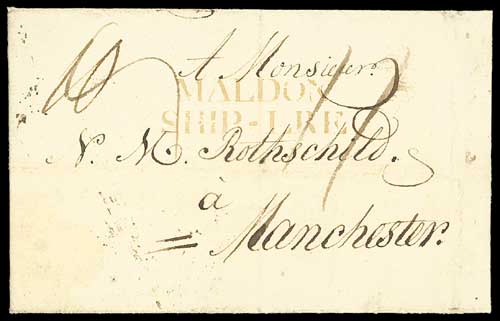 A Monsieur.
MALDON
SHIP-LRE
N. M. Rothschild.
à
Manchester.